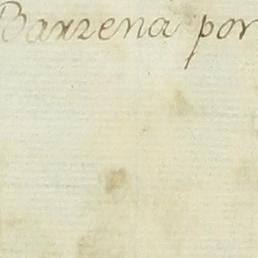 Barzena por